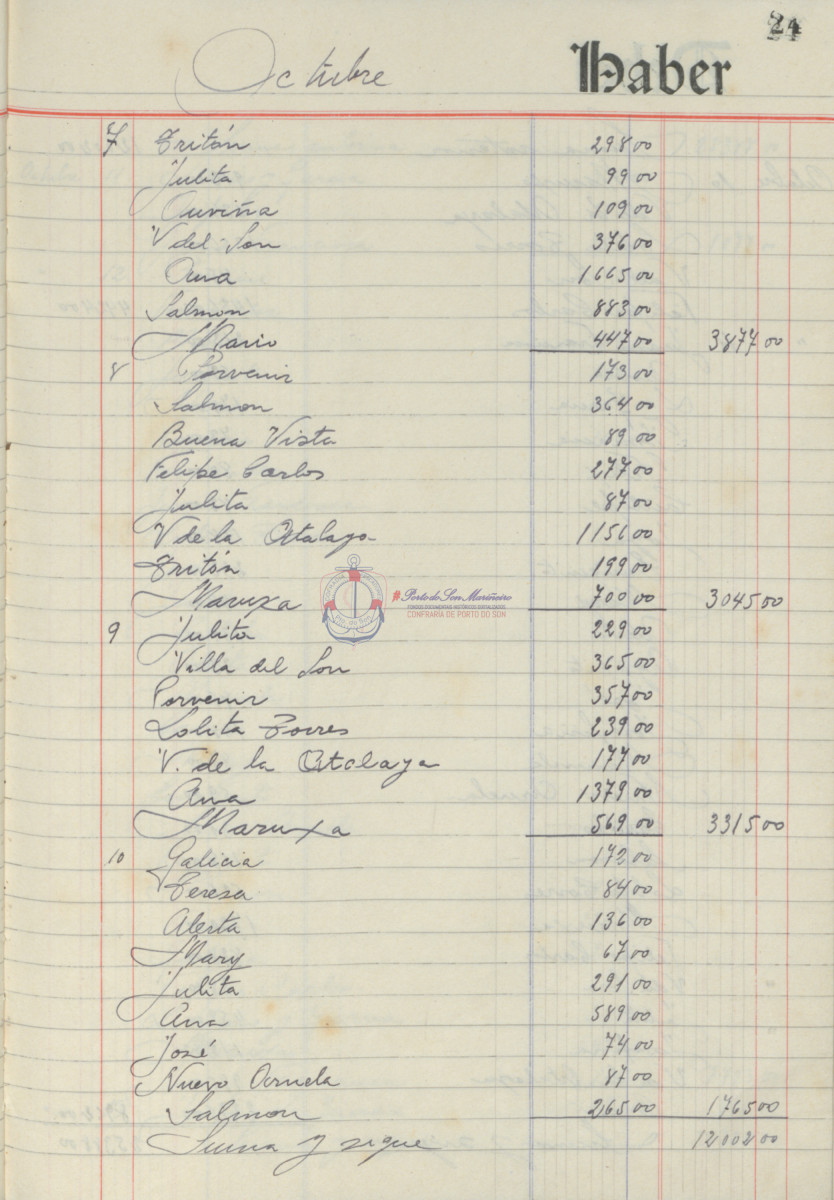 24
Octubre Haber
7 Tritón 298 00
Julita 99 00
Ouviña 109 00
V del Son 376 00
Ana 1665 00
Salmon 883 00
Mario 447 00 3877 00
8 Porvenir 173 00
Salmon 364 00
Buena Vista 89 00
Felipe Carlos 277 00
Julita 87 00
V de la Atalaya 1156 00
Tritón 199 00
Maruxa 700 00 3045 00
9 Julita 229 00
Villa del Son 365 00
Porvenir 357 00
Lolita Torres 239 00
V. de la Atalaya 177 00
Ana 1379 00
Maruxa 569 00 3315 00
10 Galicia 172 00
Teresa 84 00
Alerta 136 00
Mary 67 00
Julita 291 00
Ana 589 00
José 74 00
Nuevo 87 00
Salmon 265 00 1765 00
Suma y sigue 12002 00
#Porto do Son Mariñeiro
FONDOS DOCUMENTAIS HISTÓRICOS DIXITALIZADOS
CONFRARÍA DE PORTO DO SON